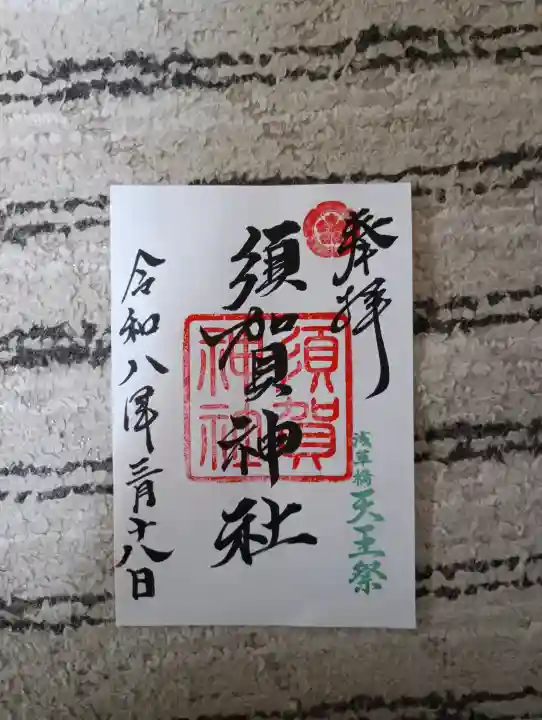 奉拝
浅草橋 天王祭
須賀神社
須賀
神社
令和八年三月十八日